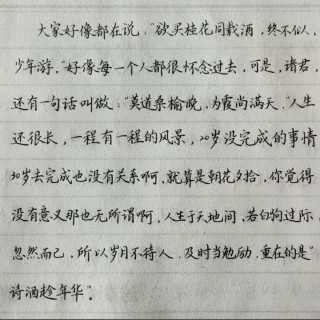 大家好像都在说，“欲买桂花同载酒，终不似，
少年游，”好像每一个人都很怀念过去，可是，诸君，
还有一句话叫做：“莫道桑榆晚，为霞尚满天，”人生
还很长，一程有一程的风景，20岁没完成的事情
30岁去完成也没有关系啊，就算是朝花夕拾，你觉得
没有意义那也无所谓啊，人生于天地间，若白驹过隙，
忽然而已，所以岁月不待人，及时当勉励，重在的是“
诗酒趁年华”。